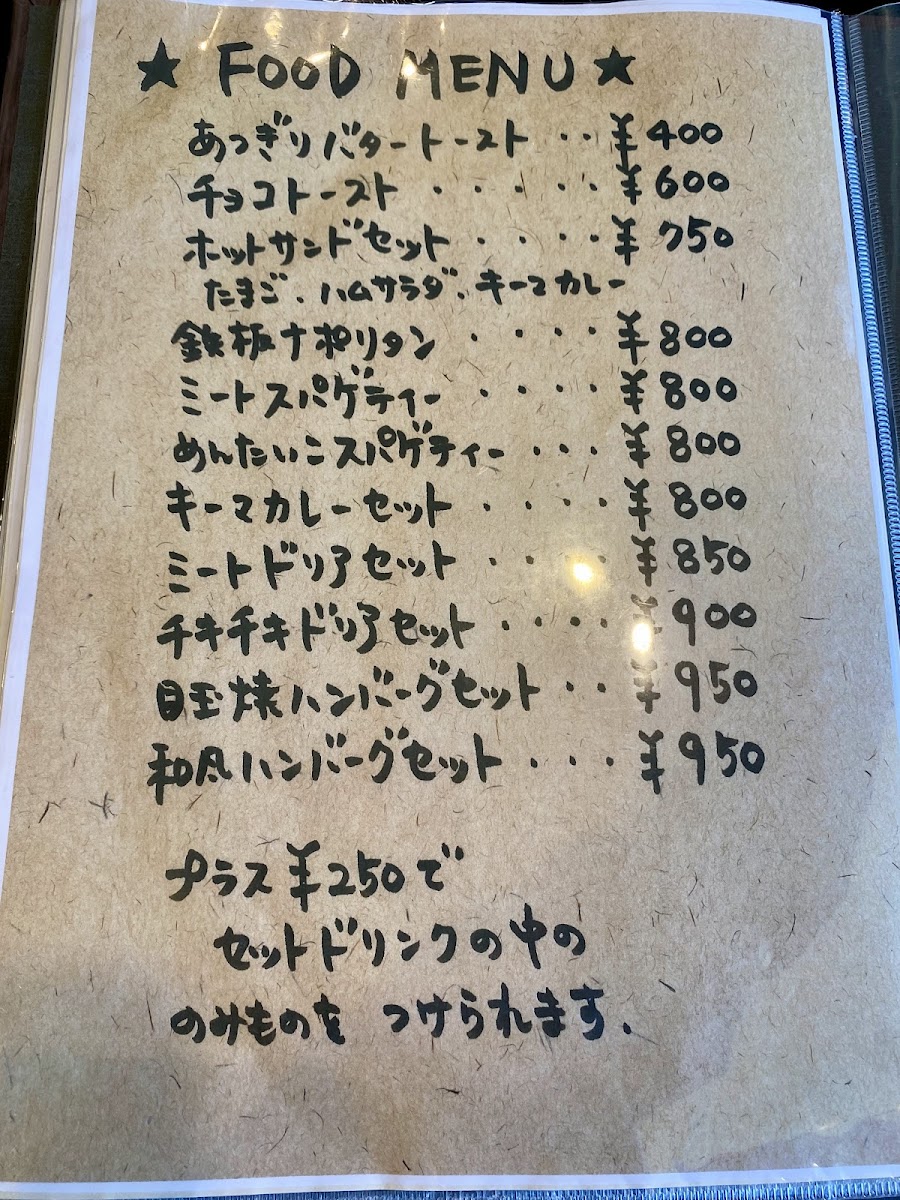 ★ FOOD MENU ★
あつぎりバタートースト ‥ ¥400
チョコトースト ・・・・・ ¥600
ホットサンドセット ・・・・ ¥750
たまご、ハムサラダ、キーマカレー
鉄板ナポリタン ・・・・ ¥800
ミートスパゲティー ・・・・ ¥800
めんたいこスパゲティー ・・・ ¥800
キーマカレーセット ・・・・ ¥800
ミートドリアセット ・・・・ ¥850
チキチキドリアセット ・・・・ ¥900
目玉焼ハンバーグセット ・・ ¥950
和風ハンバーグセット ・・・ ¥950
プラス¥250で
セットドリンクの中の
のみものを つけられます.